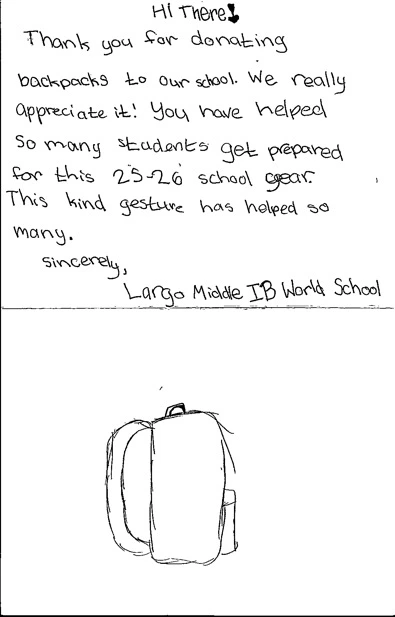 Hi There!
Thank you for donating
backpacks to our school. We really
appreciate it! You have helped
so many students get prepared
for this 25-26 school year.
This kind gesture has helped so
many.
sincerely,
Largo Middle IB World School